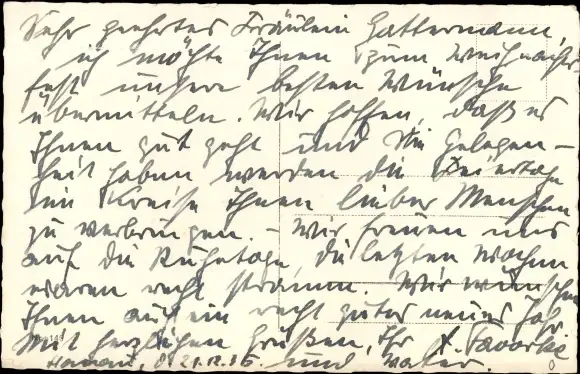 Sehr geehrtes Fräulein Gattermann,
ich möchte Ihnen zum Weihnachts
fest unsere besten Wünsche
übermitteln. Wir hoffen, daß es
Ihnen gut geht und Sie Gelegen-
heit haben werden die Feiertage
im Kreise Ihnen lieber Menschen
zu verbringen. - Wir freuen uns
auf die Ruhetage, die letzten Wochen
waren recht stramm. Wir wünschen
Ihnen auch ein recht gutes neues Jahr
Mit herzlichen Grüßen, Ihr
und Vater.
Hanau, d. 21.12.